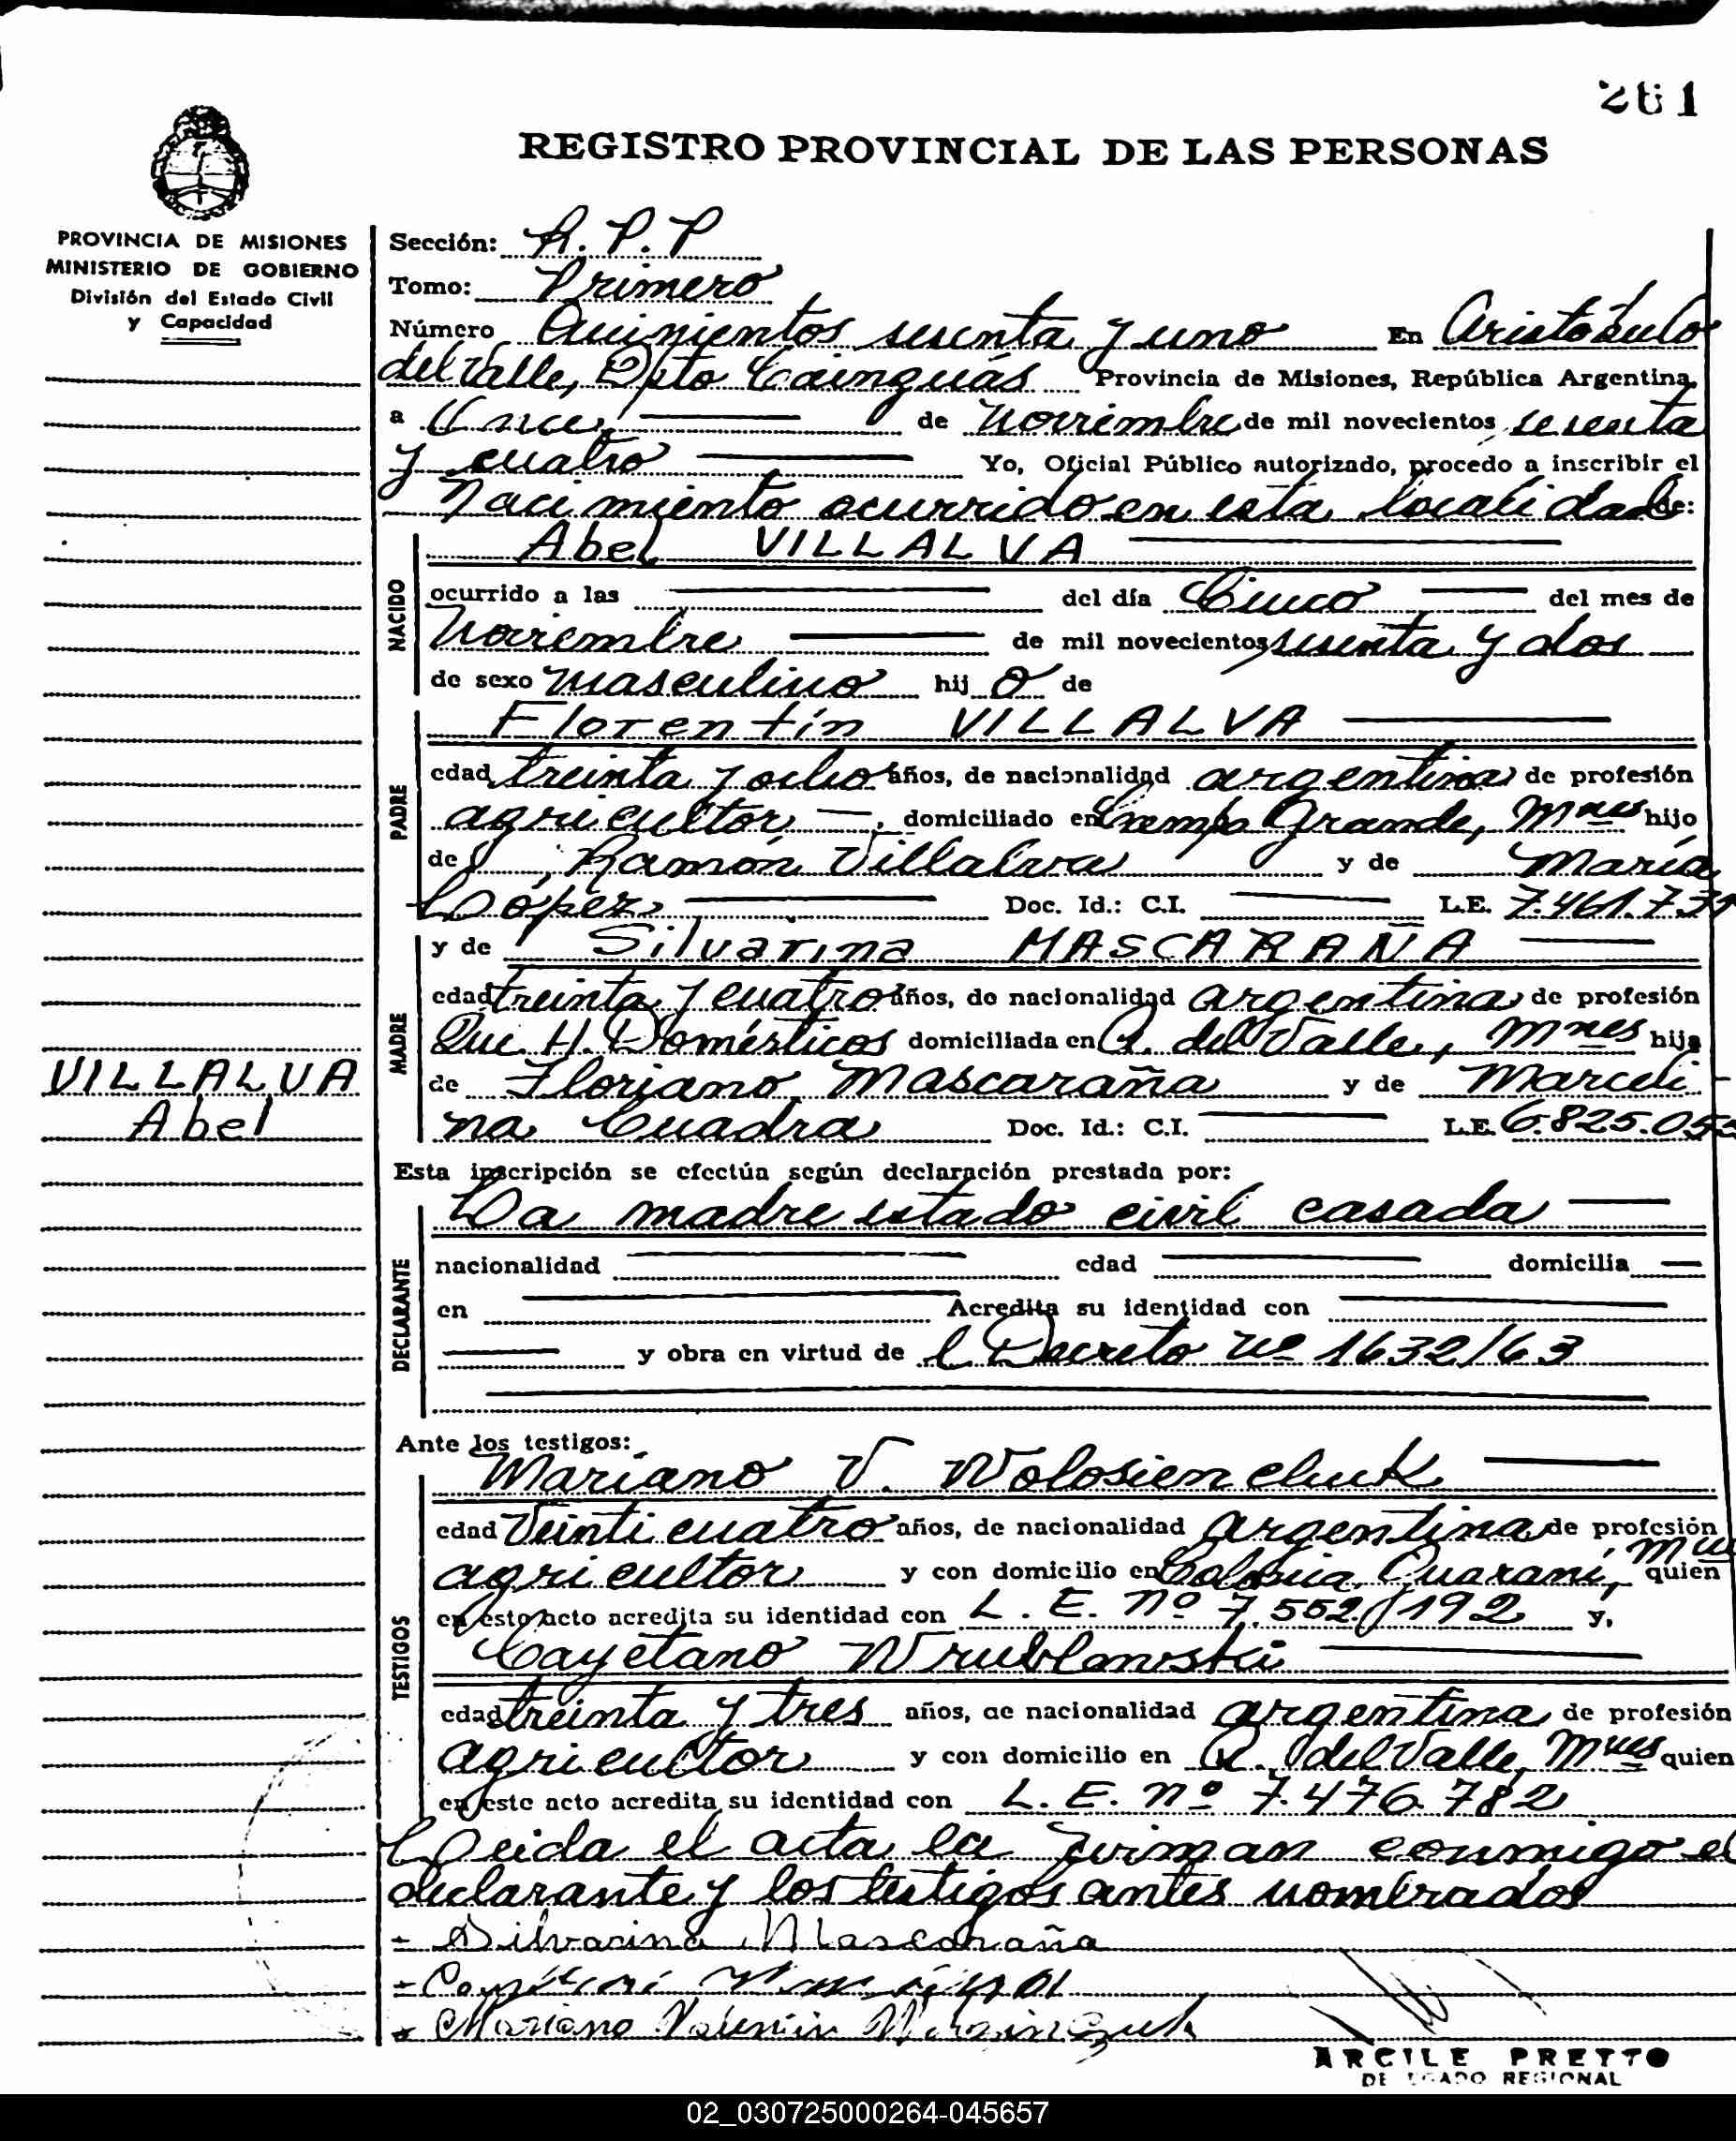 281
REGISTRO PROVINCIAL DE LAS PERSONAS
PROVINCIA DE MISIONES
MINISTERIO DE GOBIERNO
División del Estado Civil
y Capacidad
Sección: R.P.P
Tomo: Primero
Número Quinientos sesenta y uno En Aristóbulo
del Valle, Dpto Cainguás Provincia de Misiones, República Argentina,
a Once, de Noviembre de mil novecientos sesenta
y cuatro Yo, Oficial Público autorizado, procedo a inscribir el
Nacimiento ocurrido en esta localidad de:
NACIDO
Abel VILLALVA
ocurrido a las del día Cinco del mes de
Noviembre de mil novecientos sesenta y dos
de sexo masculino hij o de
PADRE
Florentín VILLALVA
edad treinta y ocho años, de nacionalidad argentina de profesión
agricultor, domiciliado en Campo Grande, Mnes hijo
de Ramón Villalva y de María
López Doc. Id.: C.I. L.E. 7.461.771
MADRE
y de Silvarina MASCARAÑA
edad treinta y cuatro años, de nacionalidad argentina de profesión
Que. H. Domésticos domiciliada en A. del Valle, Mnes hija
de Floriano Mascaraña y de Marceli-
na Cuadra Doc. Id.: C.I. L.E. 6.825.05
VILLALVA
Abel
Esta inscripción se efectúa según declaración prestada por:
DECLARANTE
La madre estado civil casada
nacionalidad edad domicilia
en Acredita su identidad con
y obra en virtud de l Decreto nº 1632/63
Ante los testigos:
TESTIGOS
Mariano V. Wolosienchuk
edad Veinticuatro años, de nacionalidad argentina de profesión
agricultor y con domicilio en Colonia Guaraní, Mnes quien
en este acto acredita su identidad con L.E. nº 7.552.192 y,
Cayetano Wrublewski
edad treinta y tres años, de nacionalidad argentina de profesión
agricultor y con domicilio en A. del Valle, Mnes quien
en este acto acredita su identidad con L.E. nº 7.476.782
Leida el acta la firman conmigo el
declarante y los testigos antes nombrados
Silvarina Mascaraña
Mariano Valentin
ARCILE PRETTO
DELEGADO REGIONAL
02_030725000264-045657